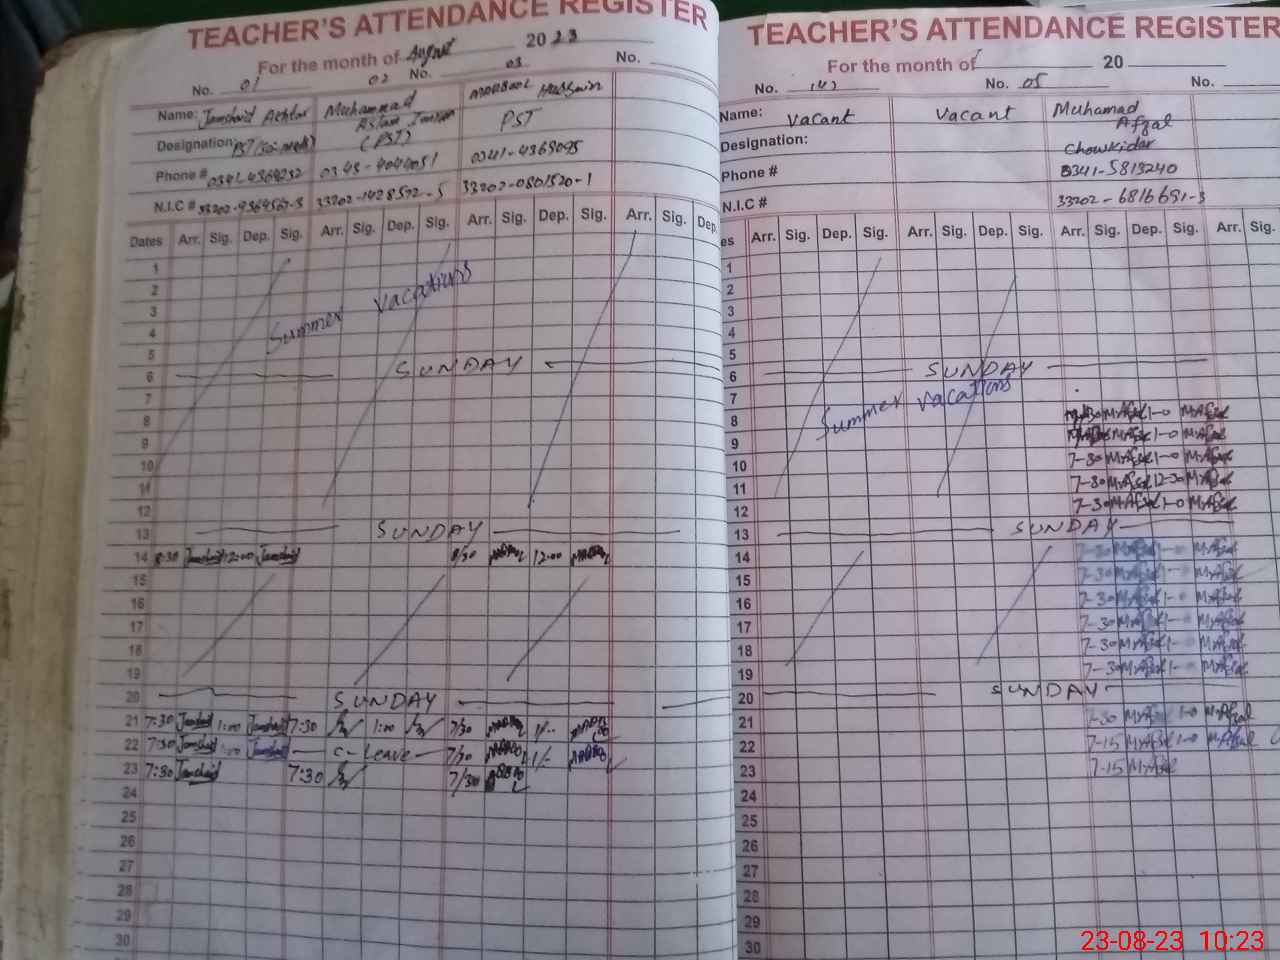 TEACHER'S ATTENDANCE REGISTER
For the month of August 2023
No. 01 02 No. 03 No.
Name: Jamshaid Akhtar Muhammad Hussain
Designation: (PST) PST
Phone # 0341-4369095
N.I.C # 33202-1428572-5 33202-0801520-1
Dates Arr. Sig. Dep. Sig. Arr. Sig. Dep. Sig. Arr. Sig. Dep. Sig. Arr. Sig. Dep.
1
2
Summer vacations
3
4
5
6 SUNDAY
7
8
9
10
11
12
13 SUNDAY
14 8:30 Jamshaid 12:00 Jamshaid 8/30 12:00
15
16
17
18
19
20 SUNDAY
21 7:30 Jamshaid 1:00 Jamshaid 7:30 1:00 7/30 1/-
22 7:30 Jamshaid 1:00 Jamshaid C-Leave 7/30 1/-
23 7:30 Jamshaid 7:30 7/30
24
25
26
27
28
29
30
TEACHER'S ATTENDANCE REGISTER
For the month of 20
No. No. 05 No.
Name: Vacant Vacant Muhamad Afzal
Designation: Chowkidar
Phone # 0341-5813240
N.I.C # 33202-6816651-3
es Arr. Sig. Dep. Sig. Arr. Sig. Dep. Sig. Arr. Sig. Dep. Sig. Arr. Sig.
1
2
3
4
5
6 SUNDAY
7
Summer vacations
8 M.Afzal 1-0 M.Afzal
9 M.Afzal 1-0 M.Afzal
10 7-30 M.Afzal 1-0 M.Afzal
11 7-30 M.Afzal 12-30 M.Afzal
12 7-30 M.Afzal 1-0 M.Afzal
13 SUNDAY
14 7-30 M.Afzal 1-0 M.Afzal
15 7-30 M.Afzal 1-0 M.Afzal
16 7-30 M.Afzal 1-0 M.Afzal
17 7-30 M.Afzal 1-0 M.Afzal
18 7-30 M.Afzal 1-0 M.Afzal
19 7-30 M.Afzal 1-0 M.Afzal
20 SUNDAY
21 7-30 M.Afzal 1-0 M.Afzal
22 7-15 M.Afzal 1-0 M.Afzal
23 7-15 M.Afzal
24
25
26
27
28
29
30
23-08-23 10:23